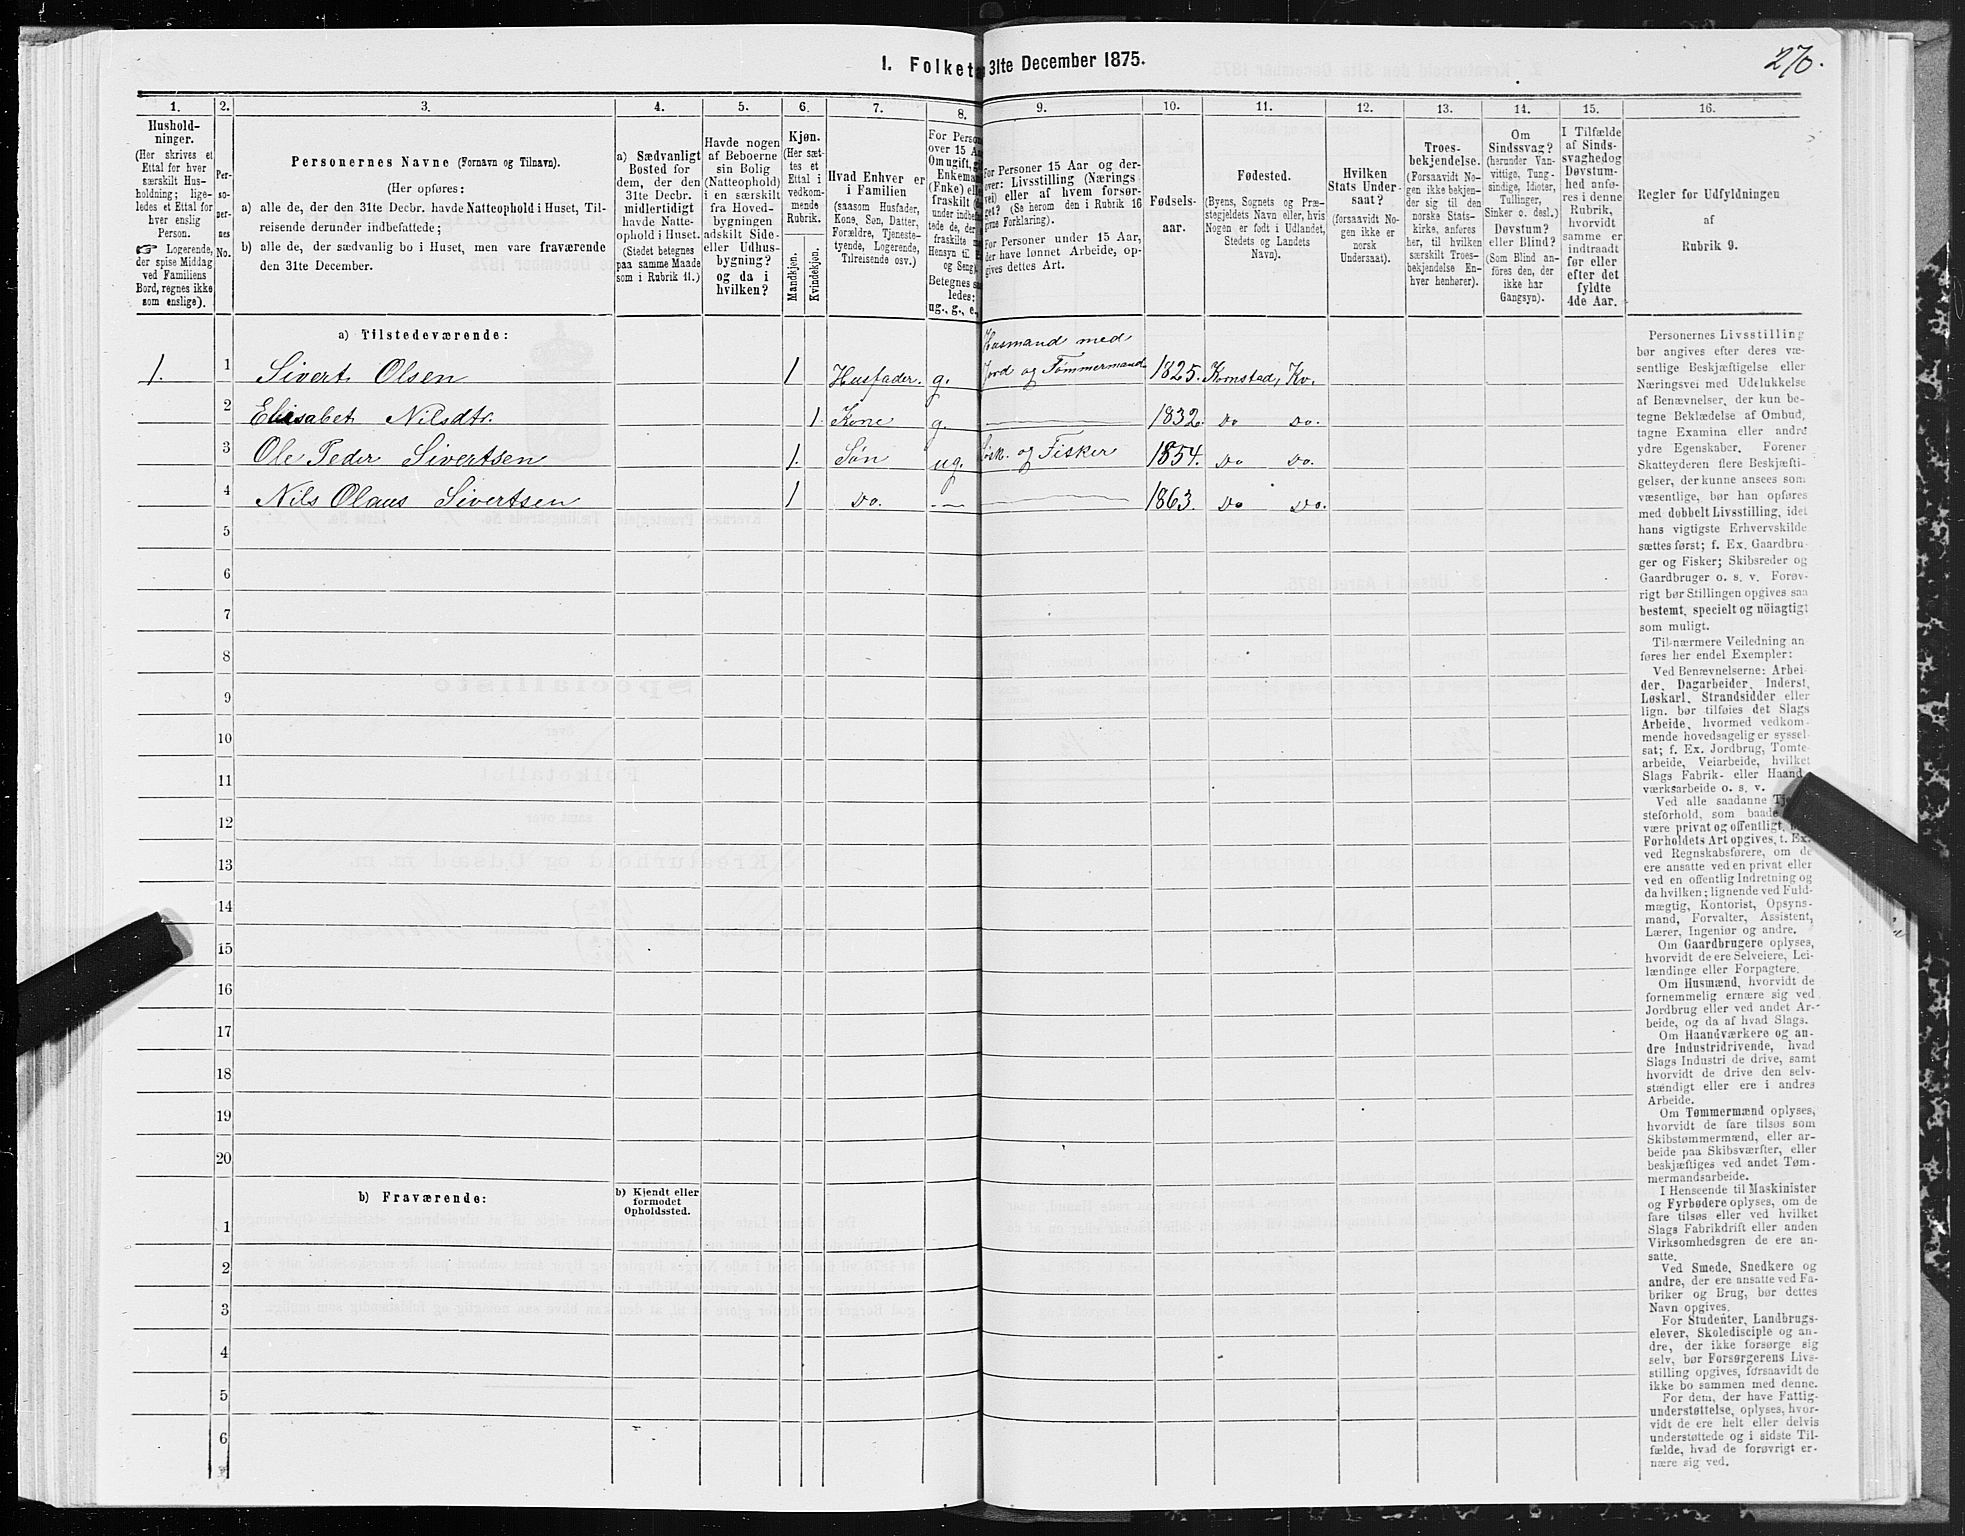 1. Folket 31te December 1875.
270.
1.
2.
3.
4.
5.
6.
7.
8.
9.
10.
11.
12.
13.
14.
15.
16.
Hushold-
ninger.
(Her skrives et
Ettal for hver
særskilt Hus-
holdning; lige-
ledes et Ettal for
hver enslig
Person.
☞ Logerende,
der spise Middag
ved Familiens
Bord, regnes ikke
som enslige).
Per-
so-
ner-
nes
No.
Personernes Navne (Fornavn og Tilnavn).
(Her opføres:
a) alle de, der den 31te Decbr. havde Natteophold i Huset, Til-
reisende derunder indbefattede;
b) alle de, der sædvanlig bo i Huset, men vare fraværende
den 31te December.
a) Sædvanligt
Bosted for
dem, der den
31te Decbr.
midlertidigt
havde Natte-
ophold i Huset.
(Stedet betegnes
paa samme Maade
som i Rubrik 11.)
Havde nogen
af Beboerne
sin Bolig
(Natteophold)
i en særskilt
fra Hoved-
bygningen
adskilt Side-
eller Udhus-
bygning?
og da i
hvilken?
Kjøn.
(Her sæt-
tes et
Ettal i
vedkom-
mende
Rubrik.
Mandkjøn.
Kvindekjøn.
Hvad Enhver er
i Familien
(saasom Husfader,
Kone, Søn, Datter,
Forældre, Tjeneste-
tyende, Logerende,
Tilreisende osv.)
For Person
over 15 Aar
Om ugift, gi
Enkemand
(Enke) elle
fraskilt (
under indbe
tede de, der
fraskilte m
Hensyn til
og Seng).
Betegnes saa
ledes:
ug., g., e.,
For Personer 15 Aar og der-
over: Livsstilling (Nærings
vei) eller af hvem forsør-
get? (Se herom den i Rubrik 16
givne Forklaring).
For Personer under 15 Aar,
der have lønnet Arbeide, op-
gives dettes Art.
Fødsels-
aar.
Fødested.
(Byens, Sognets og Præ-
stegjeldets Navn eller, hvis
Nogen er født i Udlandet,
Stedets og Landets
Navn).
Hvilken
Stats Under-
saat?
(forsaavidt No-
gen ikke er
norsk
Undersaat).
Troes-
bekjendelse.
(Forsaavidt No-
gen ikke bekjen-
der sig til den
norske Stats-
kirke, anføres
her, til hvilken
særskilt Troes-
bekjendelse En-
hver henhører).
Om
Sindssvag?
(herunder Van-
vittige, Tung-
sindige, Idioter,
Tullinger,
Sinker o. desl.)
Døvstum?
eller Blind?
(Som Blind an-
føres den, der
ikke har
Gangsyn).
I Tilfælde
af Sinds-
svaghed og
Døvstum-
hed anfø-
res i denne
Rubrik,
hvorvidt
samme er
indtraadt
før eller
efter det
fyldte
4de Aar.
Regler for Udfyldningen
af
Rubrik 9.
a) Tilstedeværende:
1. 1 Sivert Olsen 1 Husfader. g. Husmand med
Jord og Tømmermand 1825. Kornstad, Kv.
2 Elisabet Nilsdtr. 1. Kone g. 1832. Do Do.
3 Ole Peder Sivertsen 1. Søn ug. og Fisker 1854. Do Do.
4 Nils Olaus Sivertsen 1 Do. 1863. Do Do.
5
6
7
8
9
10
11
12
13
14
15
16
17
18
19
20
b) Fraværende:
b) Kjendt eller
formodet
Opholdssted.
1
2
3
4
5
6
Personernes Livsstilling
bør angives efter deres væ-
sentlige Beskjæftigelse eller
Næringsvei med Udelukkelse
af Benævnelser, der kun be-
tegne Beklædelse af Ombud,
tagne Examina eller andre
ydre Egenskaber. Forener
Skatteyderen flere Beskjæfti-
gelser, der kunne ansees som
væsentlige, bør han opføres
med dobbelt Livsstilling, idet
hans vigtigste Erhvervskilde
sættes først; f. Ex. Gaardbru-
ger og Fisker; Skibsreder og
Gaardbruger o. s. v. Forøv-
rigt bør Stillingen opgives saa
bestemt, specielt og nöiagtigt
som muligt.
Til nærmere Veiledning an-
føres her endel Exempler:
Ved Benævnelserne: Arbei-
der, Dagarbeider, Inderst,
Løskarl, Strandsidder eller
lign. bør tilføies det Slags
Arbeide, hvormed vedkom-
mende hovedsagelig er syssel-
sat; f. Ex. Jordbrug, Tomte-
arbeide, Veiarbeide, hvilket
Slags Fabrik- eller Haand-
værksarbeide o. s. v.
Ved alle saadanne Tje
steforhold, som baade
være privat og offentligt,
Forholdets Art opgives, t. Ex.
ved Regnskabsførere, om de
ere ansatte ved en privat eller
ved en offentlig Indretning og
da hvilken; lignende ved Fuld-
mægtig, Kontorist, Opsyns-
mand, Forvalter, Assistent,
Lærer, Ingeniør og andre.
Om Gaardbrugere oplyses,
hvorvidt de ere Selveiere, Lei-
lændinge eller Forpagtere.
Om Husmænd, hvorvidt de
fornemmelig ernære sig ved
Jordbrug eller ved andet Ar-
beide, og da af hvad Slags.
Om Haandværkere og an-
dre Industridrivende, hvad
Slags Industri de drive, samt
hvorvidt de drive den selv-
stændigt eller ere i andres
Arbeide.
Om Tømmermænd oplyses,
hvorvidt de fare tilsøs som
Skibstømmermænd, eller ar-
beide paa Skibsværfter, eller
beskjæftiges ved andet Tøm-
mermandsarbeide.
I Henseende til Maskinister
og Fyrbødere oplyses, om de
fare tilsøs eller ved hvilket
Slags Fabrikdrift eller anden
Virksomhedsgren de ere an-
satte.
Ved Smede, Snedkere og
andre, der ere ansatte ved Fa-
briker og Brug, bør dettes
Navn opgives.
For Studenter, Landbrugs-
elever, Skoledisciple og an-
dre, der ikke forsørge sig
selv, bør Forsørgerens Livs-
stilling opgives, forsaavidt de
ikke bo sammen med denne.
For dem, der have Fattig-
understøttelse, oplyses, hvor-
vidt de ere helt eller delvis
understøttede og i sidste Til-
fælde, hvad de forøvrigt er-
nære sig ved.